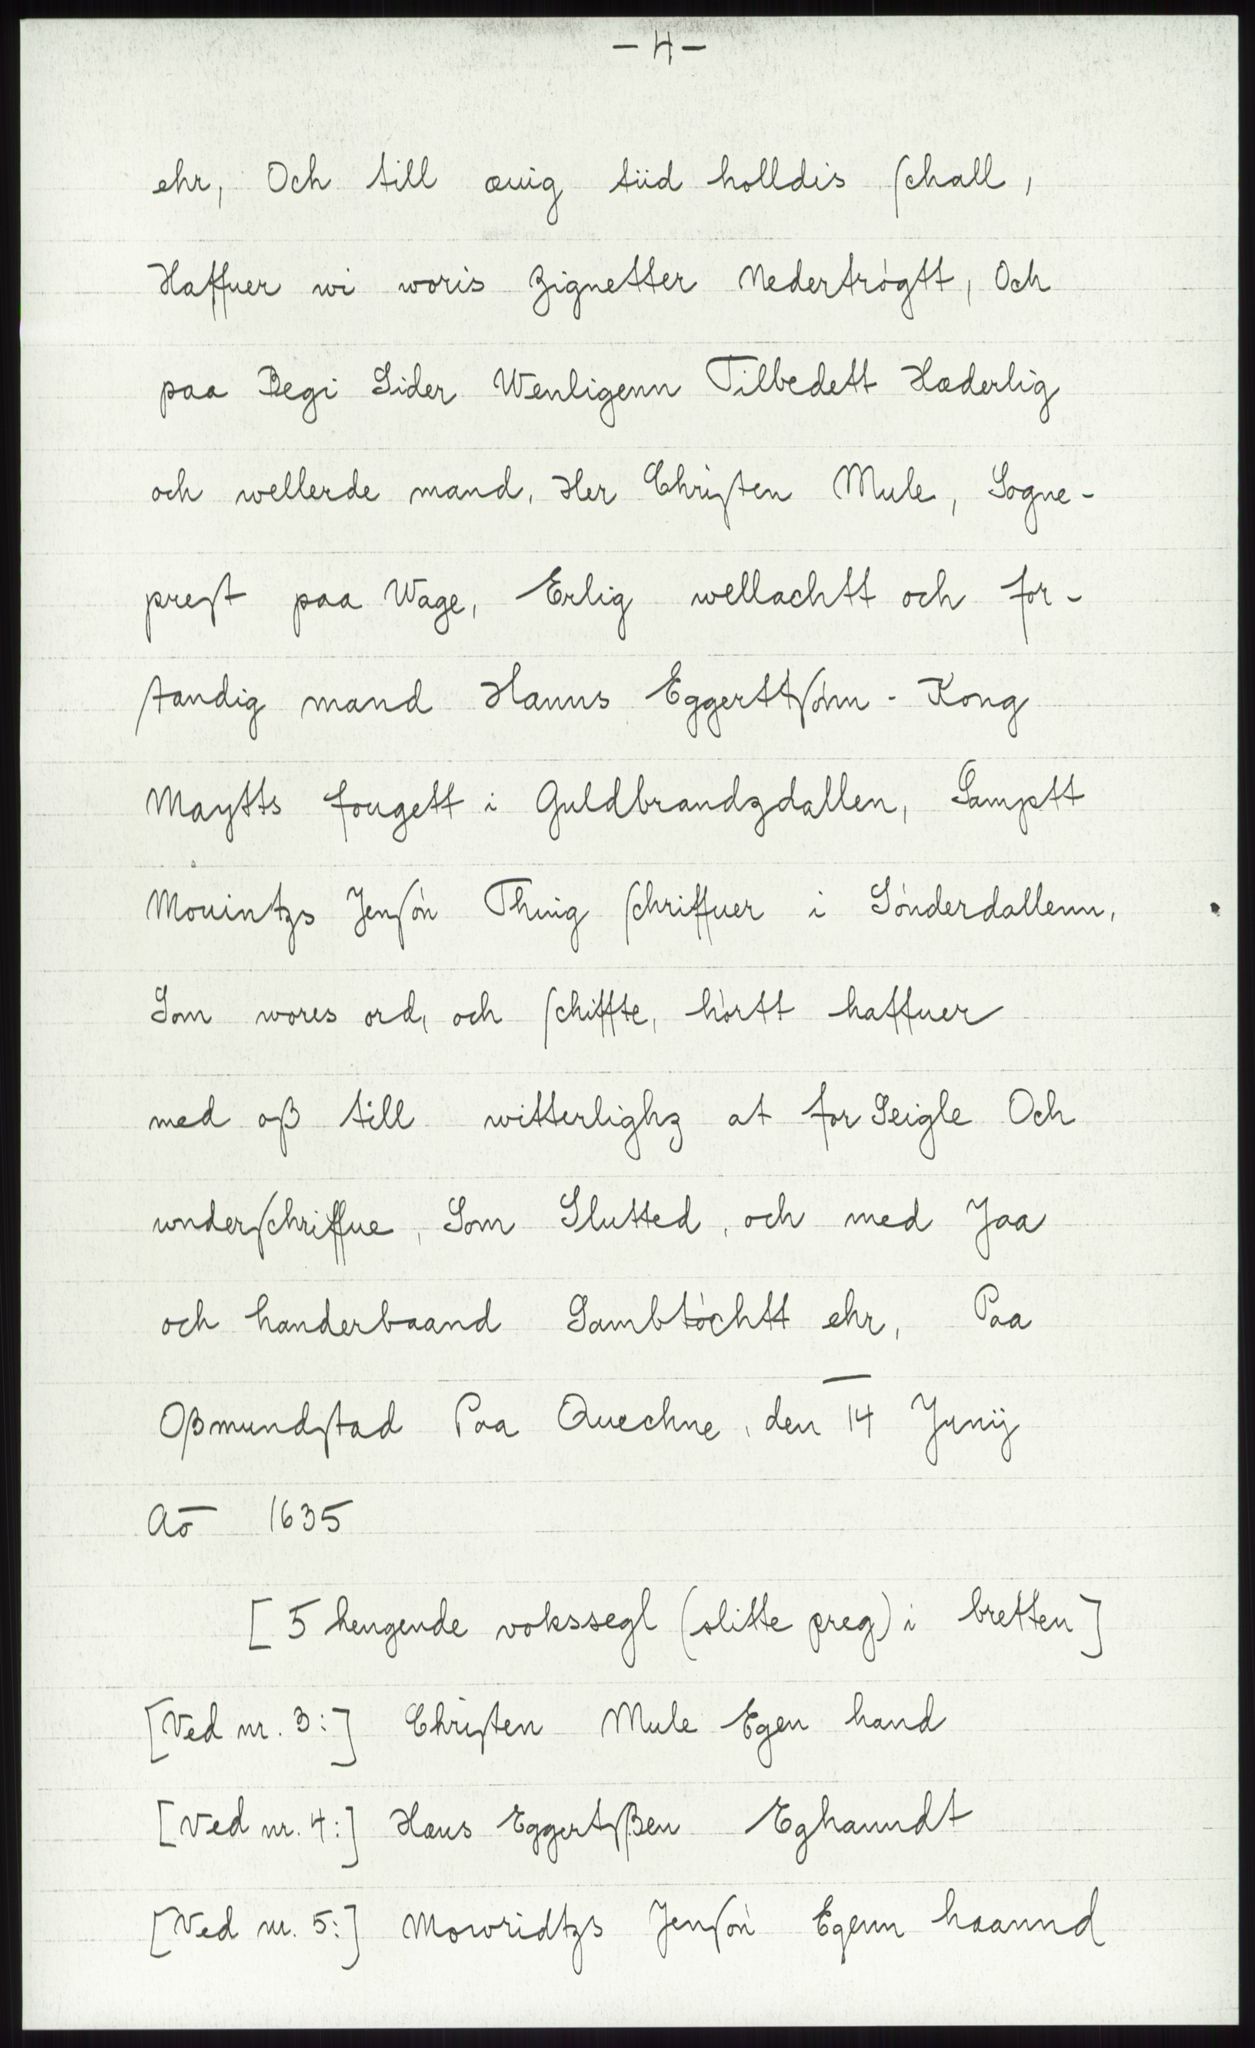 - 4 -
ehr, Och till æuig tiid holldis schall,
Haffuer wi woris Zignetter Nedertrógtt, Och
paa Begi Sider Wenligenn Tilbedett Hæderlig
och wellerde mand, Her Christen Mule, Sogne-
prest paa Wage, Erlig wellachtt och for-
standig mand Hanns Eggerttsónn - Kong
Maytts fougett i Guldbrandzdallen, Samptt
Mouintzs Jensón Thing schriffuer i Sónderdallenn,
Som wores ord, och schiffte, hórtt haffuer
med oß till witterlighz at forSeigle Och
underschriffue, Som Slutted, och med Jaa
och handerbaand Sambtóchtt ehr, Paa
Oßmundstad Paa Quechne, den 14 Junij
Aō 1635
[5 hengende vokssegl (slitte preg) i bretten]
[Ved nr. 3:] Christen Mule Egen hand
[Ved nr. 4:] Hans Eggertßen Eghanndt
[Ved nr. 5:] Mowridtzs Jensón Egenn haannd